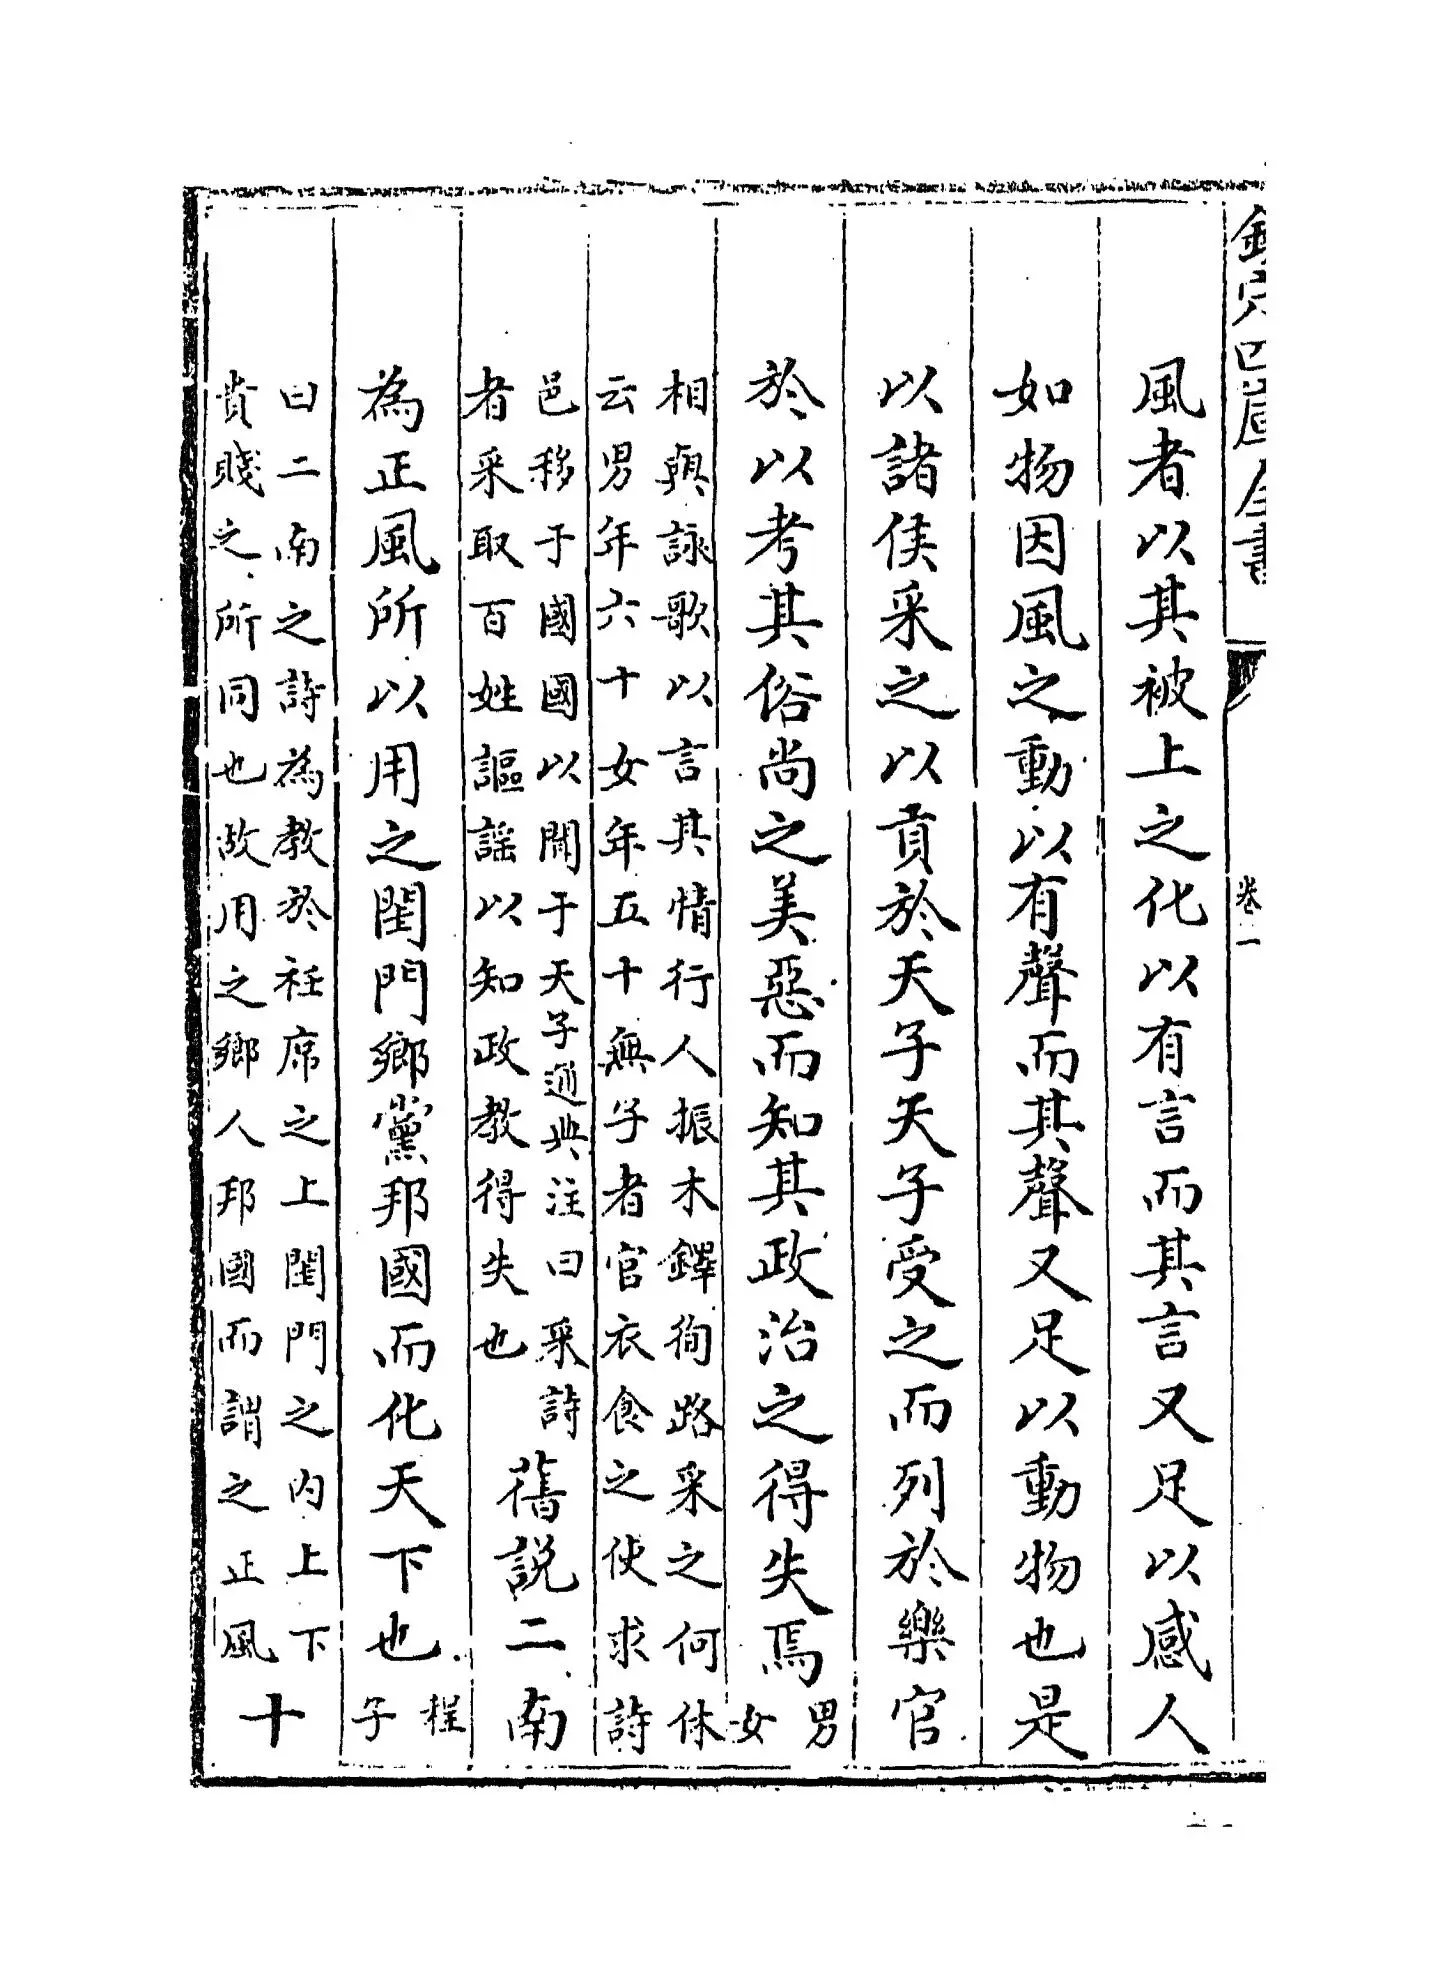 欽定四庫全書 卷一
風者以其被上之化以有言而其言又足以感人
如物因風之動以有聲而其聲又足以動物也是
以諸侯采之以貢於天子天子受之而列於樂官
於以考其俗尚之美惡而知其政治之得失焉男女
相與詠歌以言其情行人振木鐸徇路采之何休
云男年六十女年五十無子者官衣食之使求詩
邑移于國國以聞于天子通典注曰采詩
者采取百姓謳謡以知政教得失也
舊説二南
為正風所以用之閨門鄉黨邦國而化天下也程子
曰二南之詩為教於袵席之上閨門之内上下
貴賤之所同也故用之鄉人邦國而謂之正風
十